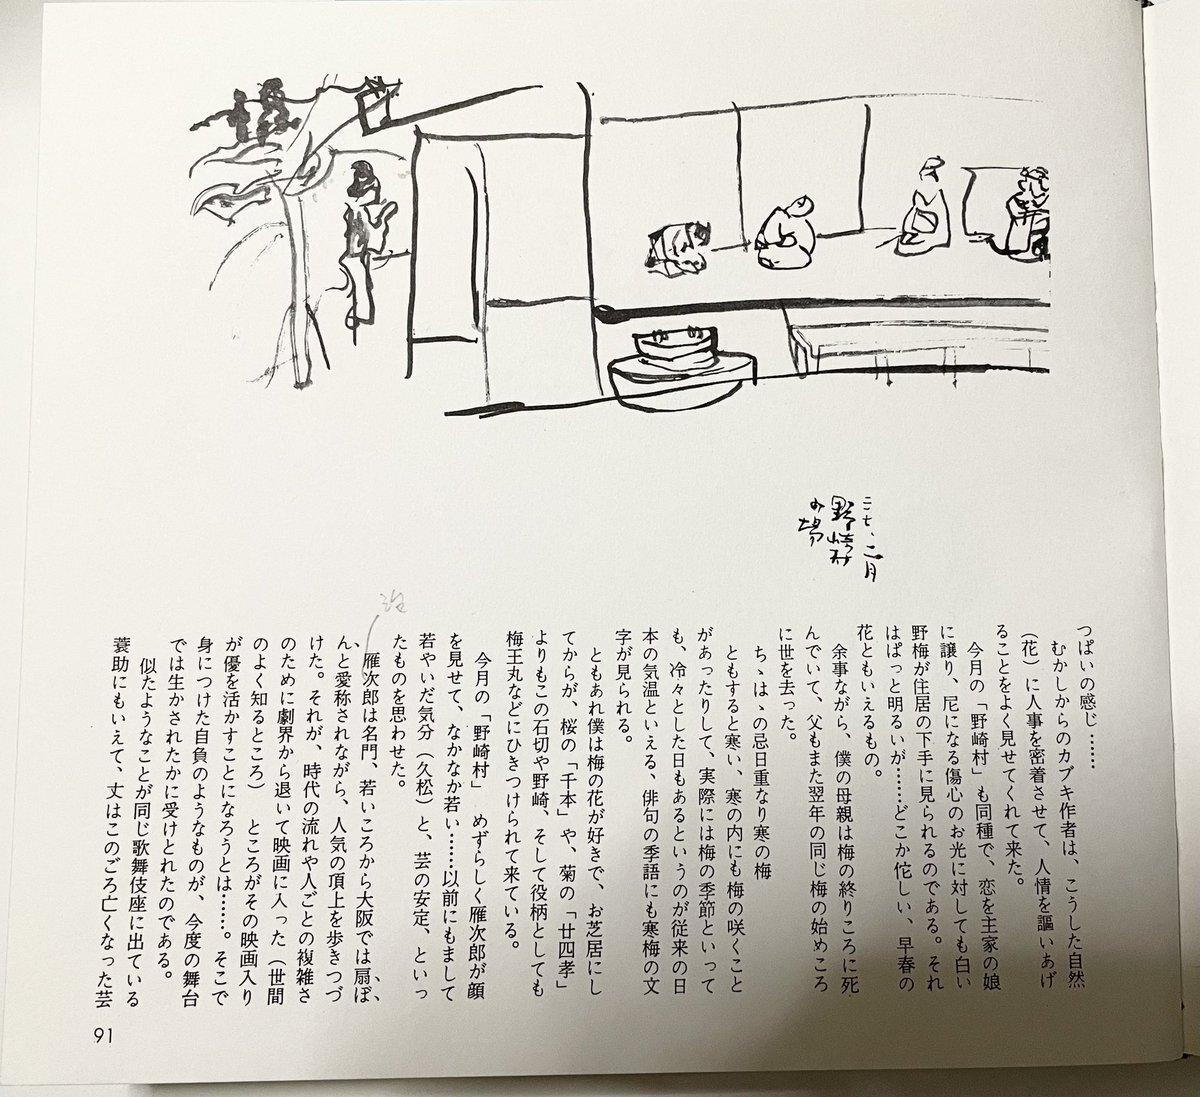 二七、二月
野崎村
の場
つぱいの感じ……
むかしからのカブキ作者は、こうした自然
（花）に人事を密着させて、人情を謳いあげ
ることをよく見せてくれて来た。
今月の「野崎村」も同種で、恋を主家の娘
に譲り、尼になる傷心のお光に対しても白い
野梅が住居の下手に見られるのである。それ
はぱっと明るいが……どこか佗しい、早春の
花ともいえるもの。
余事ながら、僕の母親は梅の終りころに死
んでいて、父もまた翌年の同じ梅の始めころ
に世を去った。
ちゝはゝの忌日重なり寒の梅
ともすると寒い、寒の内にも梅の咲くこと
があったりして、実際には梅の季節といって
も、冷々とした日もあるというのが従来の日
本の気温といえる、俳句の季語にも寒梅の文
字が見られる。
ともあれ僕は梅の花が好きで、お芝居にし
てからが、桜の「千本」や、菊の「廿四孝」
よりもこの石切や野崎、そして役柄としても
梅王丸などにひきつけられて来ている。
今月の「野崎村」　めずらしく雁次郎が顔
を見せて、なかなか若い……以前にもまして
若やいだ気分（久松）と、芸の安定、といっ
たものを思わせた。
治
雁次郎は名門、若いころから大阪では扇ぼ
んと愛称されながら、人気の頂上を歩きつづ
けた。それが、時代の流れや人ごとの複雑さ
のために劇界から退いて映画に入った（世間
のよく知るところ）　ところがその映画入り
が優を活かすことになろうとは……。そこで
身につけた自負のようなものが、今度の舞台
では生かされたかに受けとれたのである。
似たようなことが同じ歌舞伎座に出ている
蓑助にもいえて、丈はこのごろ亡くなった芸
91